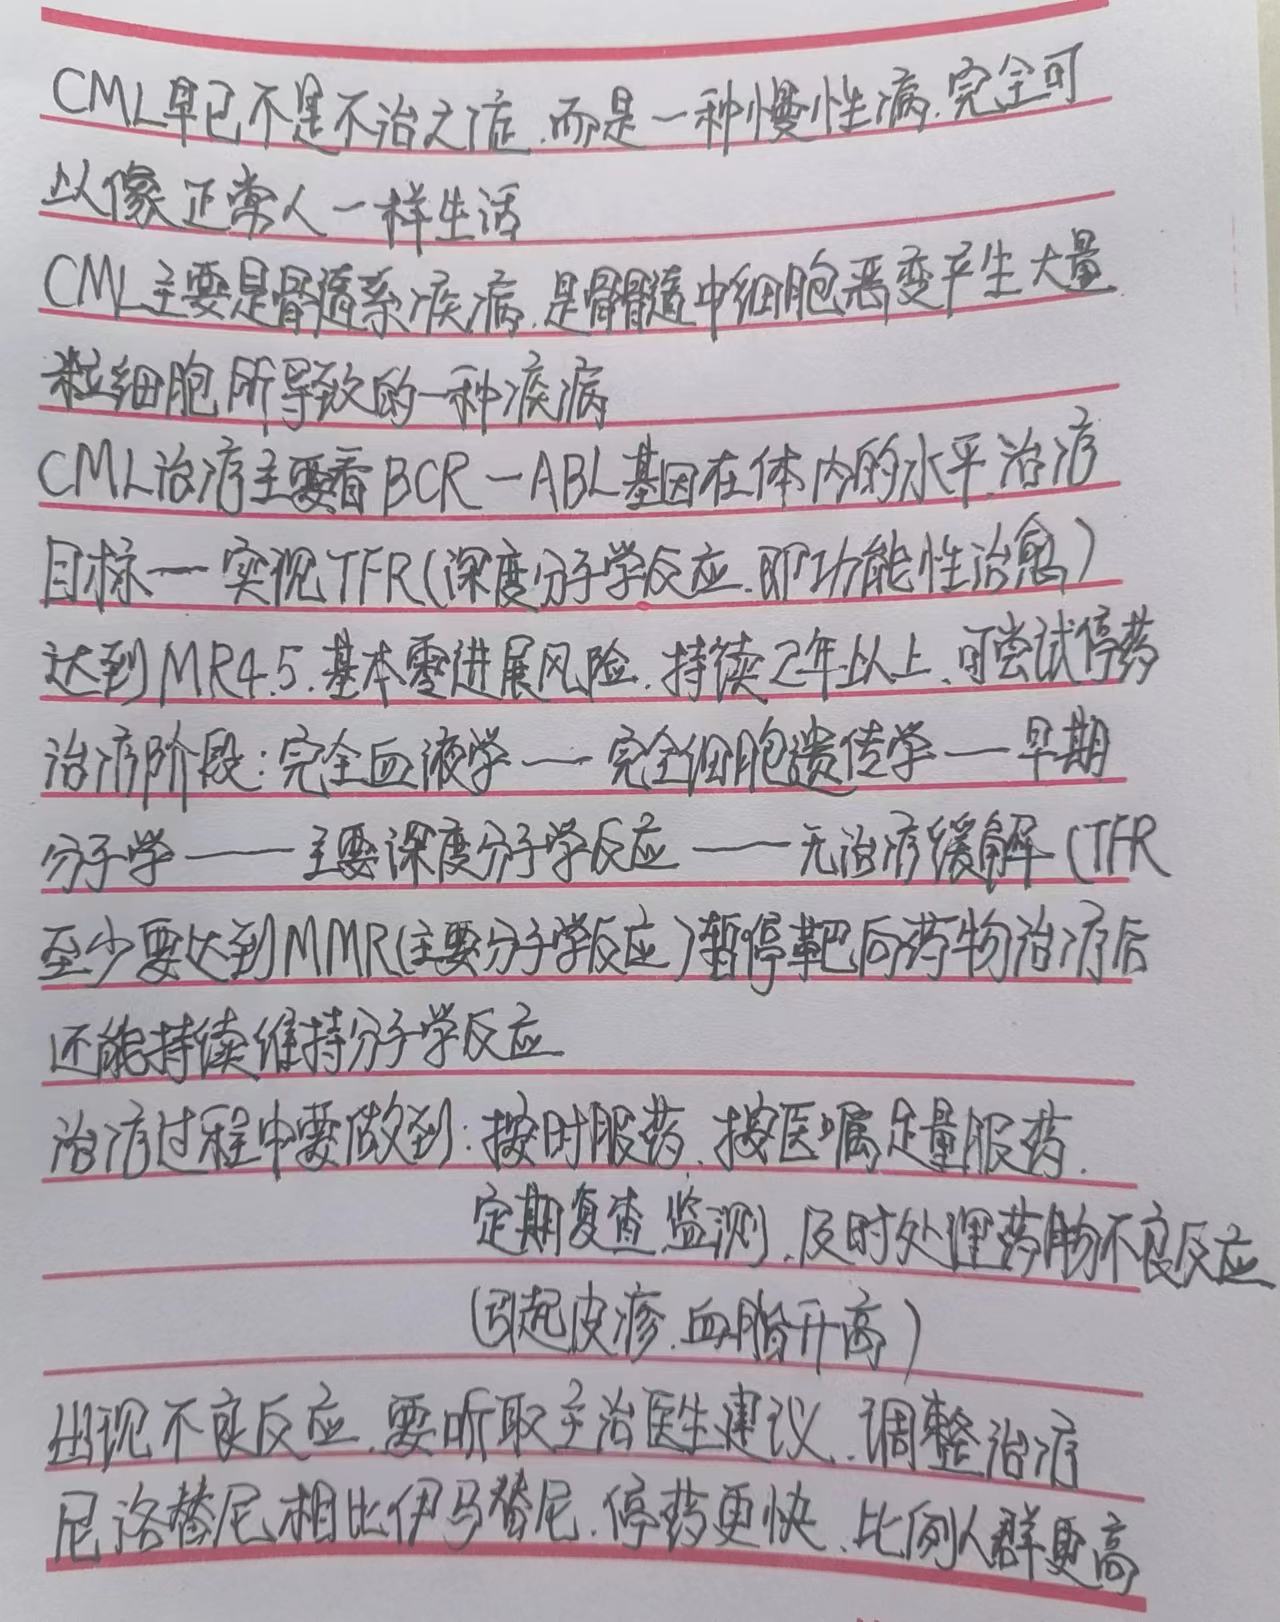 CML早已不是不治之症.而是一种慢性病.完全可
以像正常人一样生活
CML主要是骨髓系疾病.是骨髓中细胞恶变产生大量
粒细胞所导致的一种疾病
CML治疗主要看BCR-ABL基因在体内的水平.治疗
目标—实现TFR(深度分子学反应.即功能性治愈)
达到MR4.5.基本零进展风险.持续2年以上.可尝试停药
治疗阶段:完全血液学—完全细胞遗传学—早期
分子学——主要深度分子学反应——无治疗缓解(TFR
至少要达到MMR(主要分子学反应)暂停靶向药物治疗后
还能持续维持分子学反应
治疗过程中要做到:按时服药.按医嘱足量服药.
定期复查.监测.及时处理药物不良反应
(引起皮疹.血脂升高)
出现不良反应.要听取主治医生建议.调整治疗
尼洛替尼相比伊马替尼.停药更快.比例人群更高